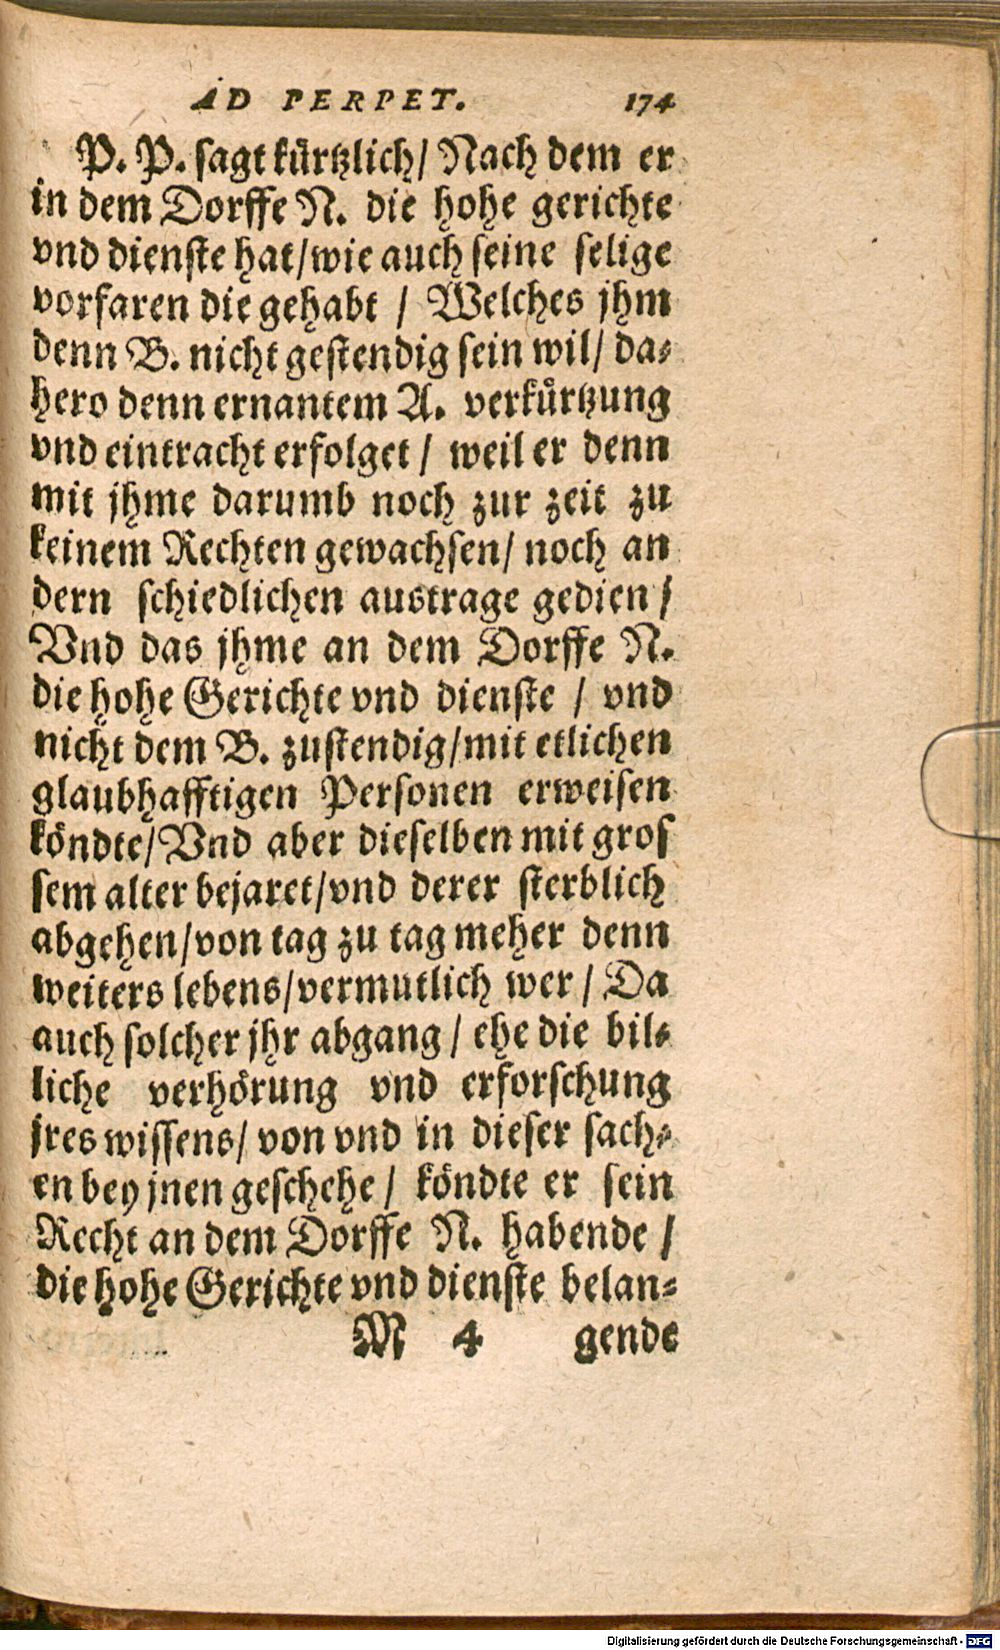 AD PERPET. 174
P. P. sagt kürtzlich/ Nach dem er
in dem Dorffe N. die hohe gerichte
vnd dienste hat/wie auch seine selige
vorfaren die gehabt / Welches jhm
denn B. nicht gestendig sein wil/ da-
hero denn ernantem A. verkürtzung
vnd eintracht erfolget / weil er denn
mit jhme darumb noch zur zeit zu
keinem Rechten gewachsen/ noch an
dern schiedlichen austrage gedien /
Vnd das jhme an dem Dorffe N.
die hohe Gerichte vnd dienste / vnd
nicht dem B. zustendig/mit etlichen
glaubhafftigen Personen erweisen
köndte/Vnd aber dieselben mit gros
sem alter bejaret/vnd derer sterblich
abgehen/von tag zu tag meher denn
weiters lebens/vermutlich wer / Da
auch solcher jhr abgang / ehe die bil-
liche verhörung vnd erforschung
jres wissens/ von vnd in dieser sach-
en bey jnen geschehe / köndte er sein
Recht an dem Dorffe N. habende /
die hohe Gerichte vnd dienste belan-
M 4 gende
Digitalisierung gefördert durch die Deutsche Forschungsgemeinschaft - DFG